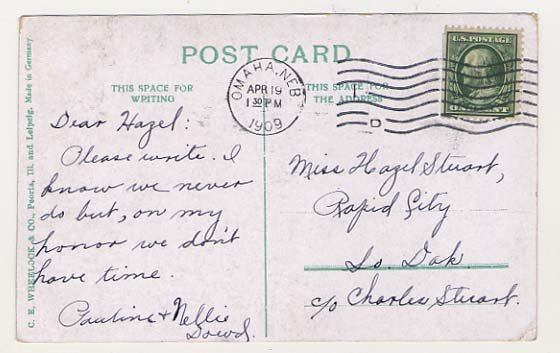 POST CARD
THIS SPACE FOR
WRITING
THIS SPACE FOR
THE ADDRESS
OMAHA, NEB.
APR 19
1 30 PM
1909
D
U.S. POSTAGE
ONE CENT
C. E. WHEELOCK & CO., Peoria, Ill. and Leipzig. Made in Germany.
Dear Hazel:
Please write. I
know we never
do but, on my
honor we don't
have time.
Pauline & Nellie
Dowd.
Miss Hazel Stuart,
Rapid City
So. Dak
c/o Charles Stuart.